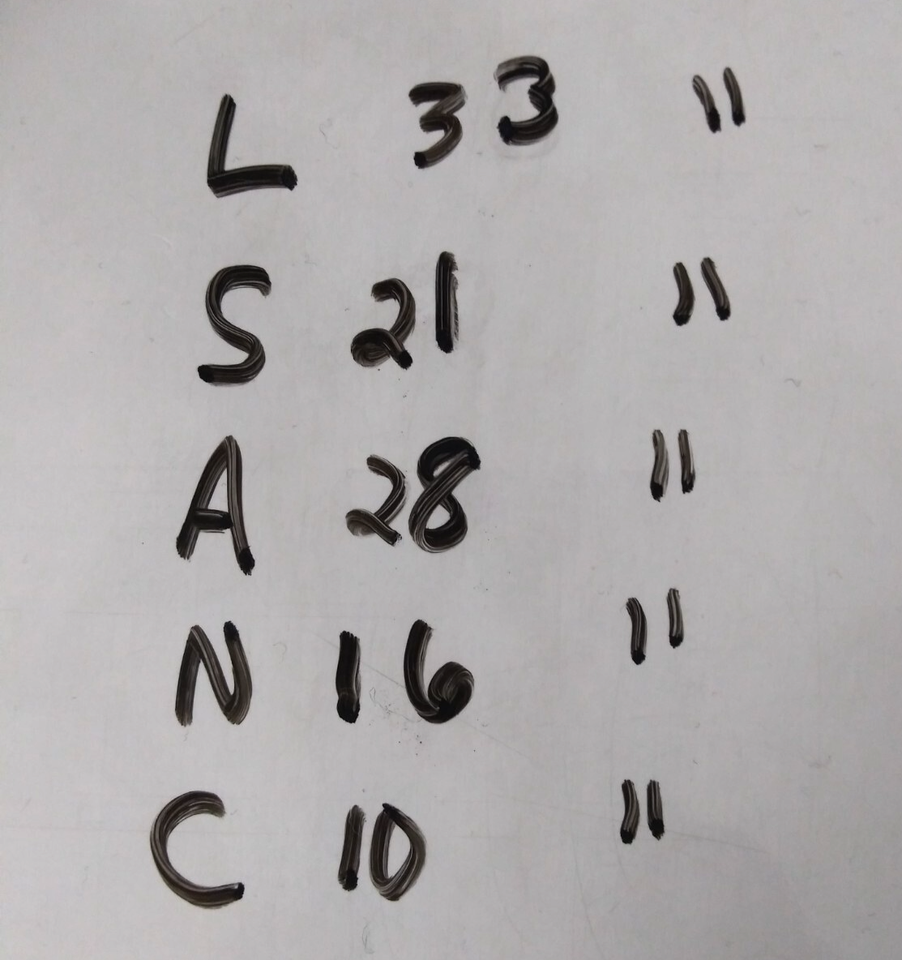 L 33 "
S 21 "
A 28 "
N 16 "
C 10 "